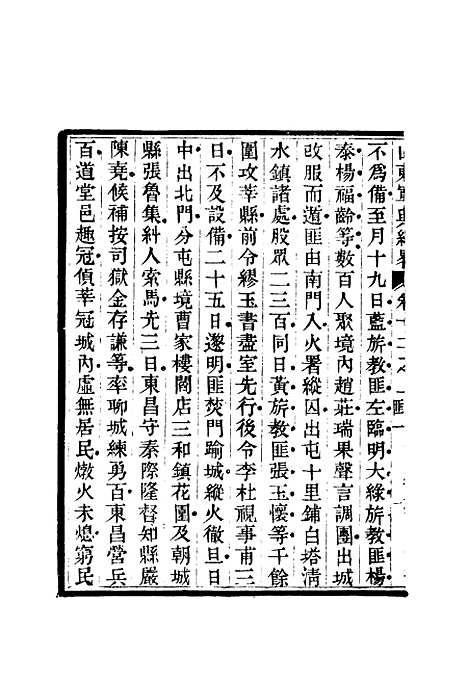 山東軍興紀畧 卷十二之上
不爲備至月十九日藍旂教匪左臨明大綠旂教匪楊
泰楊福齡等數百人聚境內趙莊瑞果聲言調團出城
改服而遁匪由南門入火署縱囚出屯十里鋪白塔淸
水鎮諸處股眾二三百同日黃旂教匪張玉懷等千餘
圍攻莘縣前令繆玉書盡室先行後令李杜視事甫三
日不及設備二十五日邌明匪焚門踰城縱火徹旦日
中出北門分屯縣境曹家樓閣店三和鎮花圍及朝城
縣張魯集糾人索馬先三日東昌守秦際隆督知縣嚴
陳堯候補按司獄金存謙等率聊城練勇百東昌營兵
百道堂邑趣冠偵莘冠城內虛無居民燉火未熄窮民